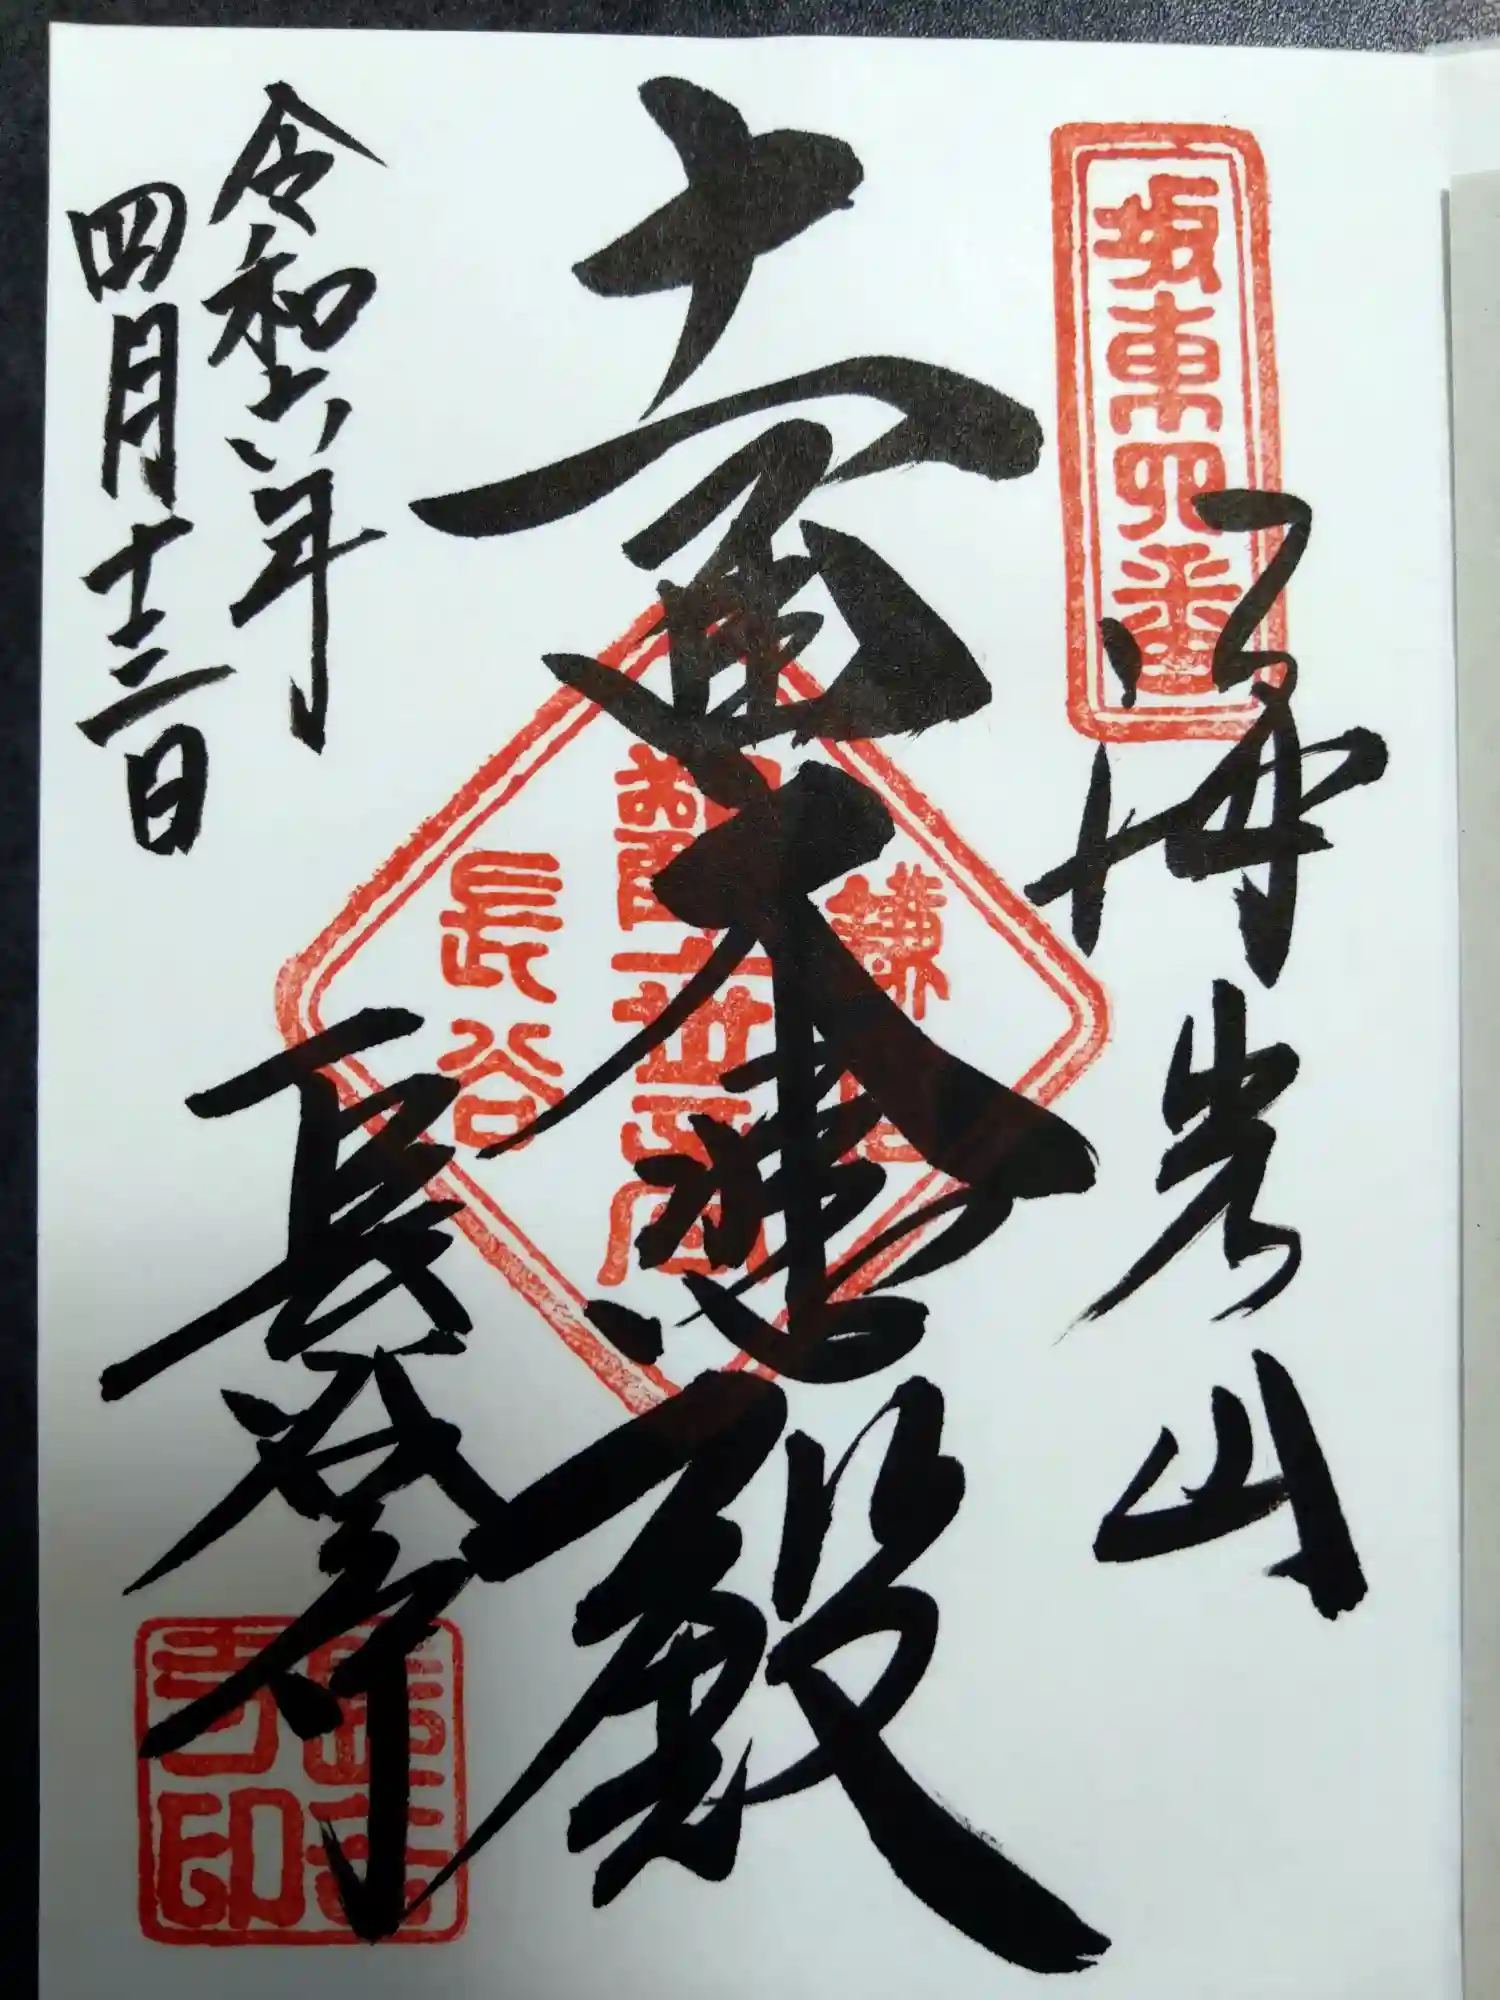 坂東四番
海光山
十一面大悲殿
鎌倉
觀世音
長谷
長谷寺
令和六年
四月十三日
長谷
寺印